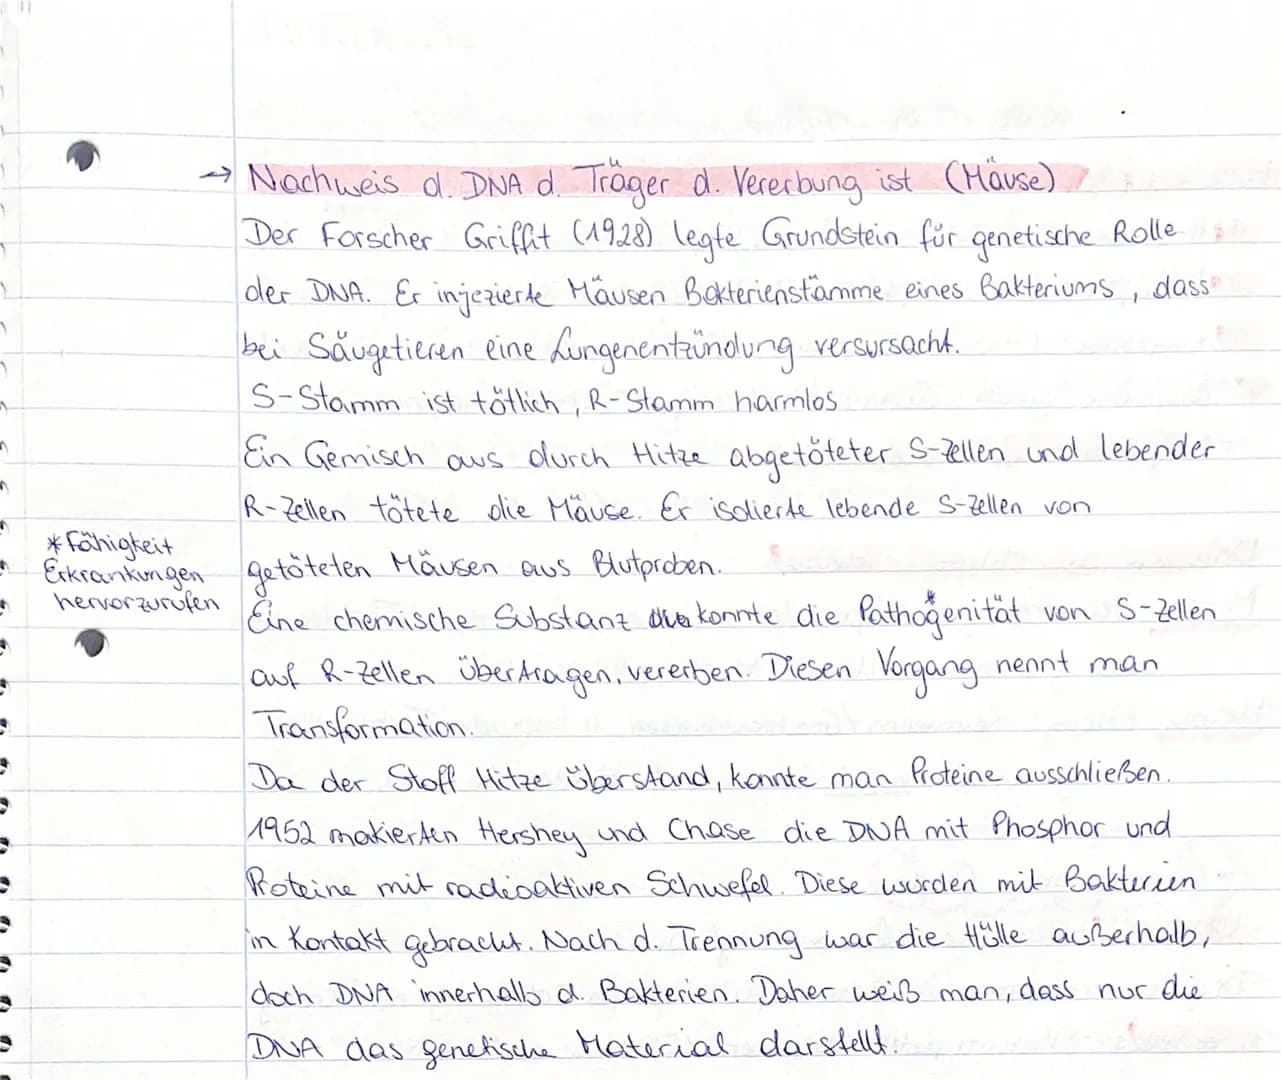 → Nachweis d. DNA d. Träger d. Vererbung ist (Mäuse)
Der Forscher Griffit (1928) legte Grundstein für genetische Rolle
der DNA. Er injezierte Mäusen Bakterienstämme eines Bakteriums, dass
bei Säugetieren eine Lungenentzündung versursacht.
S-Stamm ist tötlich, R-Stamm harmlos
Ein Gemisch aus durch Hitze abgetöteter S-Zellen und lebender
R-Zellen tötete die Mäuse. Er isolierte lebende S-Zellen von
getöteten Mäusen aus Blutproben.
* Fähigkeit
Erkrankungen
hervorzurufen
Eine chemische Substanz konnte die Pathogenität* von S-Zellen
auf R-Zellen übertragen, vererben. Diesen Vorgang nennt man
Transformation.
Da der Stoff Hitze überstand, konnte man Proteine ausschließen.
1952 makierten Hershey und Chase die DNA mit Phosphor und
Proteine mit radioaktiven Schwefel. Diese wurden mit Bakterien
in Kontakt gebracht. Nach d. Trennung war die Hülle außerhalb,
doch DNA innerhalb d. Bakterien. Daher weiß man, dass nur die
DNA das genetische Material darstellt.